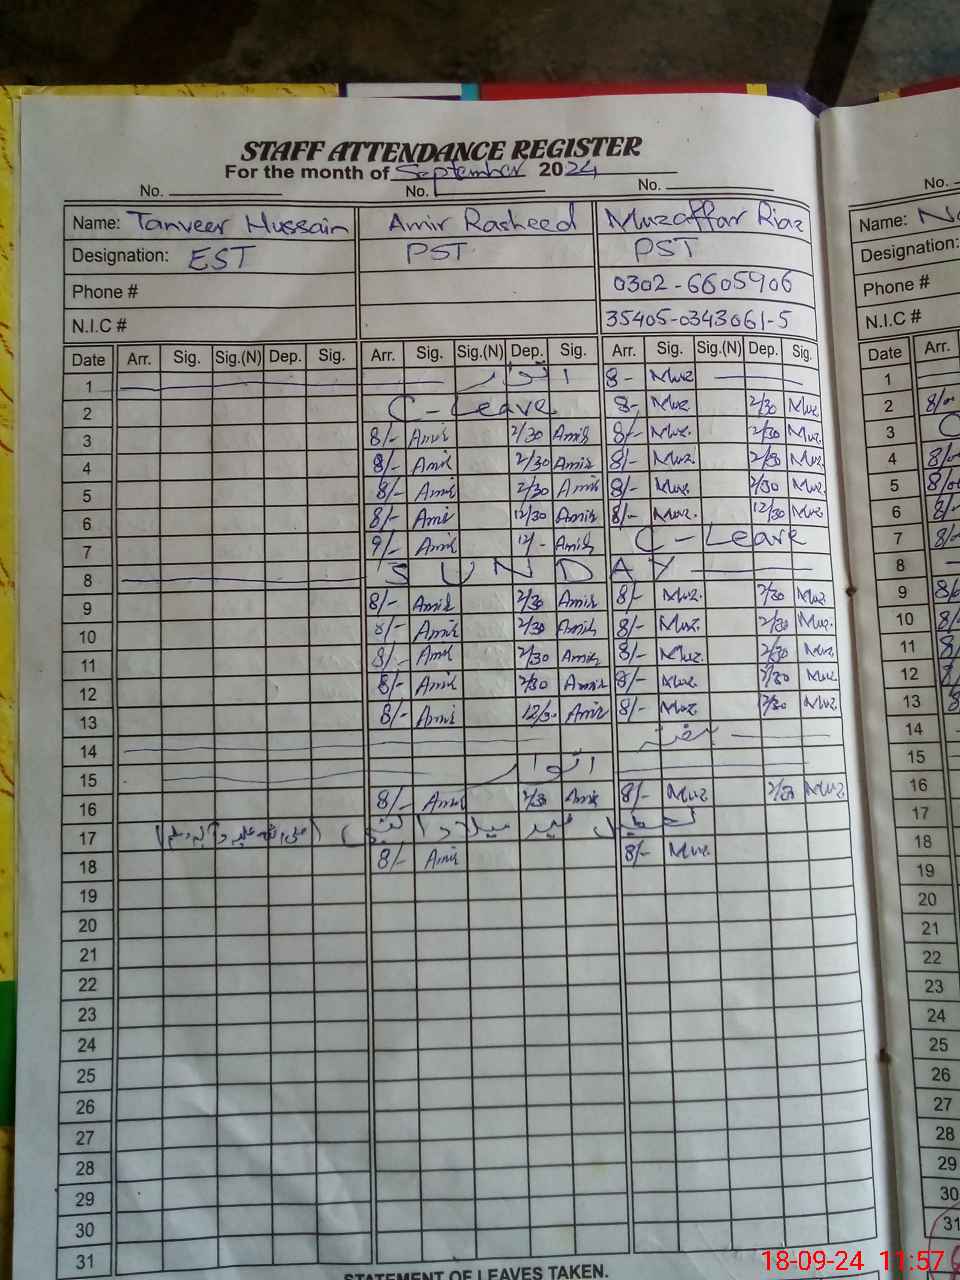 STAFF ATTENDANCE REGISTER
For the month of September 2024
No. No. No. No.
Name: Tanveer Hussain Amir Rasheed Muzaffar Riaz Name:
Designation: EST PST PST Designation:
Phone # 0302-6605906 Phone #
N.I.C # 35405-0343061-5 N.I.C #
Date Arr. Sig. Sig.(N) Dep. Sig. Arr. Sig. Sig.(N) Dep. Sig. Arr. Sig. Sig.(N) Dep. Sig. Date Arr.
1 اتوار 8- Muz 1
2 C-Leave 8- Muz 2/30 Muz 2 8/00
3 8/- Amir 2/30 Amir 8/- Muz. 2/30 Muz. 3
4 8/- Amir 2/30 Amir 8/- Muz. 2/30 Muz. 4 8/00
5 8/- Amir 2/30 Amir 8/- Muz. 2/30 Muz. 5 8/00
6 8/- Amir 12/30 Amir 8/- Muz. 12/30 Muz. 6 8/-
7 9/- Amir 12/- Amir C-Leave 7 8/-
8 SUNDAY 8
9 8/- Amir 2/30 Amir 8/- Muz. 2/30 Muz. 9
10 8/- Amir 2/30 Amir 8/- Muz. 2/30 Muz. 10
11 8/- Amir 2/30 Amir 8/- Muz. 2/30 Muz. 11
12 8/- Amir 2/30 Amir 8/- Muz. 2/30 Muz 12
13 8/- Amir 12/30 Amir 8/- Muz 12/30 Muz. 13
14 ہفتہ 14
15 اتوار 15
16 8/- Amir 2/30 Amir 8/- Muz 2/30 Muz. 16
17 تعطیل عید میلاد النبی 17
18 8/- Amir 8/- Muz. 18
19 19
20 20
21 21
22 22
23 23
24 24
25 25
26 26
27 27
28 28
29 29
30 30
31 31
STATEMENT OF LEAVES TAKEN.
18-09-24 11:57